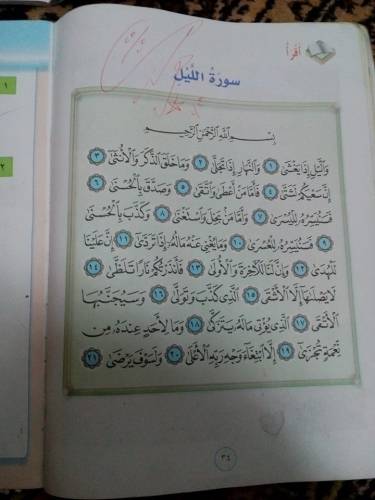 أقرأ
سورة الليل
بِسْمِ اللَّهِ الرَّحْمَٰنِ الرَّحِيمِ
وَاللَّيْلِ إِذَا يَغْشَىٰ ١ وَالنَّهَارِ إِذَا تَجَلَّىٰ ٢ وَمَا خَلَقَ الذَّكَرَ وَالْأُنثَىٰ ٣
إِنَّ سَعْيَكُمْ لَشَتَّىٰ ٤ فَأَمَّا مَنْ أَعْطَىٰ وَاتَّقَىٰ ٥ وَصَدَّقَ بِالْحُسْنَىٰ ٦
فَسَنُيَسِّرُهُ لِلْيُسْرَىٰ ٧ وَأَمَّا مَنْ بَخِلَ وَاسْتَغْنَىٰ ٨ وَكَذَّبَ بِالْحُسْنَىٰ
٩ فَسَنُيَسِّرُهُ لِلْعُسْرَىٰ ١٠ وَمَا يُغْنِي عَنْهُ مَالُهُ إِذَا تَرَدَّىٰ ١١ إِنَّ عَلَيْنَا
لَلْهُدَىٰ ١٢ وَإِنَّ لَنَا لَلْآخِرَةَ وَالْأُولَىٰ ١٣ فَأَنذَرْتُكُمْ نَارًا تَلَظَّىٰ ١٤
لَا يَصْلَاهَا إِلَّا الْأَشْقَى ١٥ الَّذِي كَذَّبَ وَتَوَلَّىٰ ١٦ وَسَيُجَنَّبُهَا
الْأَتْقَى ١٧ الَّذِي يُؤْتِي مَالَهُ يَتَزَكَّىٰ ١٨ وَمَا لِأَحَدٍ عِندَهُ مِن
نِّعْمَةٍ تُجْزَىٰ ١٩ إِلَّا ابْتِغَاءَ وَجْهِ رَبِّهِ الْأَعْلَىٰ ٢٠ وَلَسَوْفَ يَرْضَىٰ ٢١
٣٤
١
٢